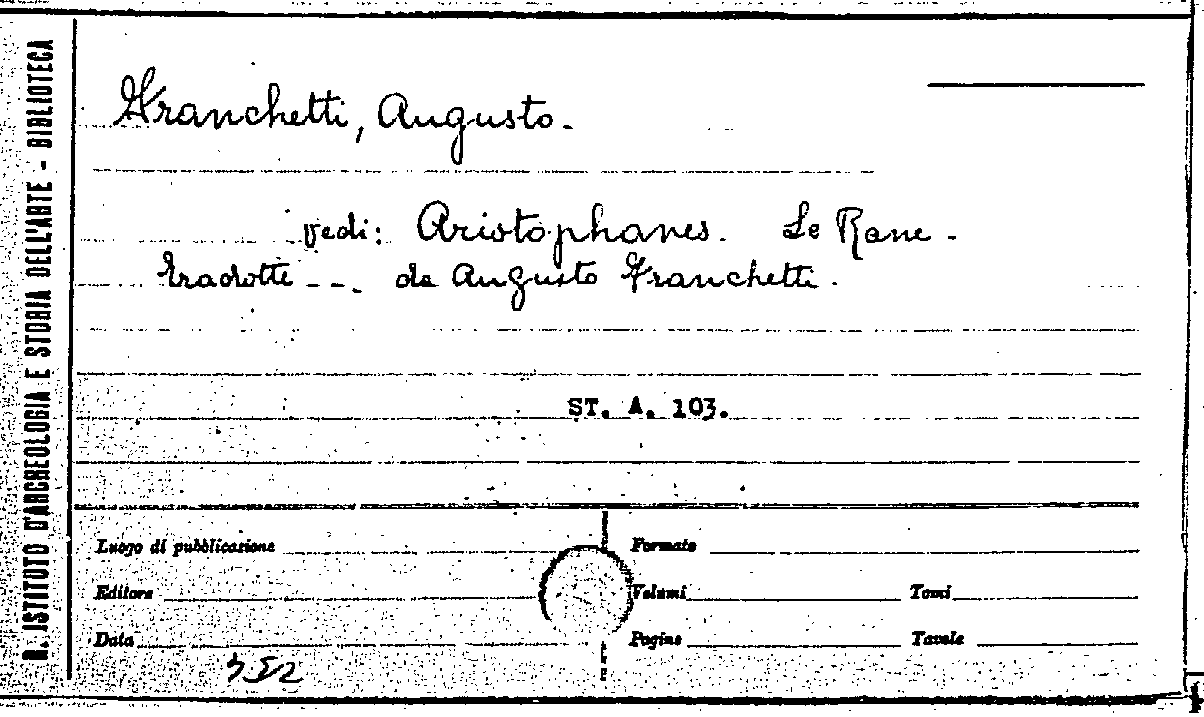 R. ISTITUTO D'ARCHEOLOGIA E STORIA DELL'ARTE - BIBLIOTECA
Franchetti, Augusto.
vedi: Aristophanes. Le Rane.
tradotte --- da Augusto Franchetti.
ST. A. 103.
Luogo di pubblicazione
Formato
Editore
Volumi
Tomi
Data
Pagine
Tavole